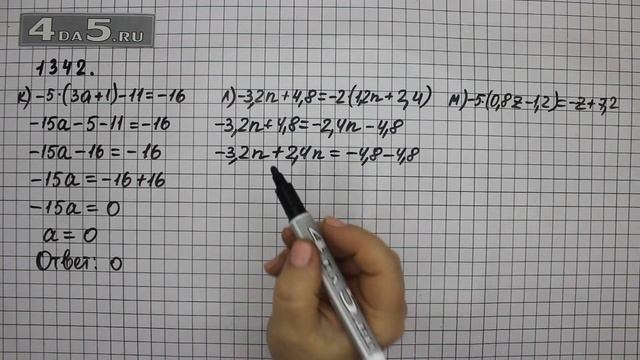 4DA5.RU
1342.
к) -5·(3a+1)-11=-16
-15a-5-11=-16
-15a-16=-16
-15a=-16+16
-15a=0
a=0
Ответ: 0
л) -3,2n+4,8=-2(1,2n+2,4)
-3,2n+4,8=-2,4n-4,8
-3,2n+2,4n=-4,8-4,8
м) -5(0,8z-1,2)=-z+7,2